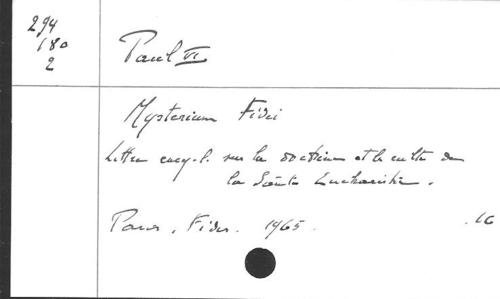 294
180
2
Paul VI
Mysterium Fidei
Lettre encycl. sur la doctrine et le culte de
la Sainte Eucharistie.
Paris, Fides. 1965. 16